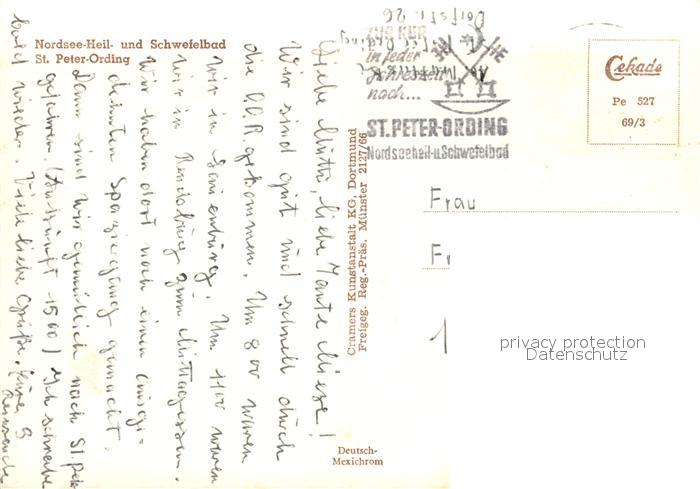 Nordsee-Heil- und Schwefelbad
St. Peter-Ording
Liebe Mutti, liebe Tante Miese!
Wir sind gut und schnell durch
die D.D.R. gekommen. Um 8 00 waren
wir in Lauenburg. Um 11 00 waren
wir in Rendsburg zum Mittagessen.
Wir haben dort noch einen
Spaziergang gemacht.
Dann sind wir gemütlich nach St. Pet.
gefahren. (Ankunft 15 00) Ich schreibe
bald wieder. Viele liebe Grüße. Eure
Cramers Kunstanstalt KG. Dortmund
Freigeg. Reg.-Präs. Münster 2127/66
Deutsch-
Mexichrom
Dorfstr. 26
ZUR KUR
in jeder
Jahreszeit
nach...
ST. PETER-ORDING
Nordseeheil-u.Schwefelbad
Cekade
Pe 527
69/3
Frau
F.
1
privacy protection
Datenschutz